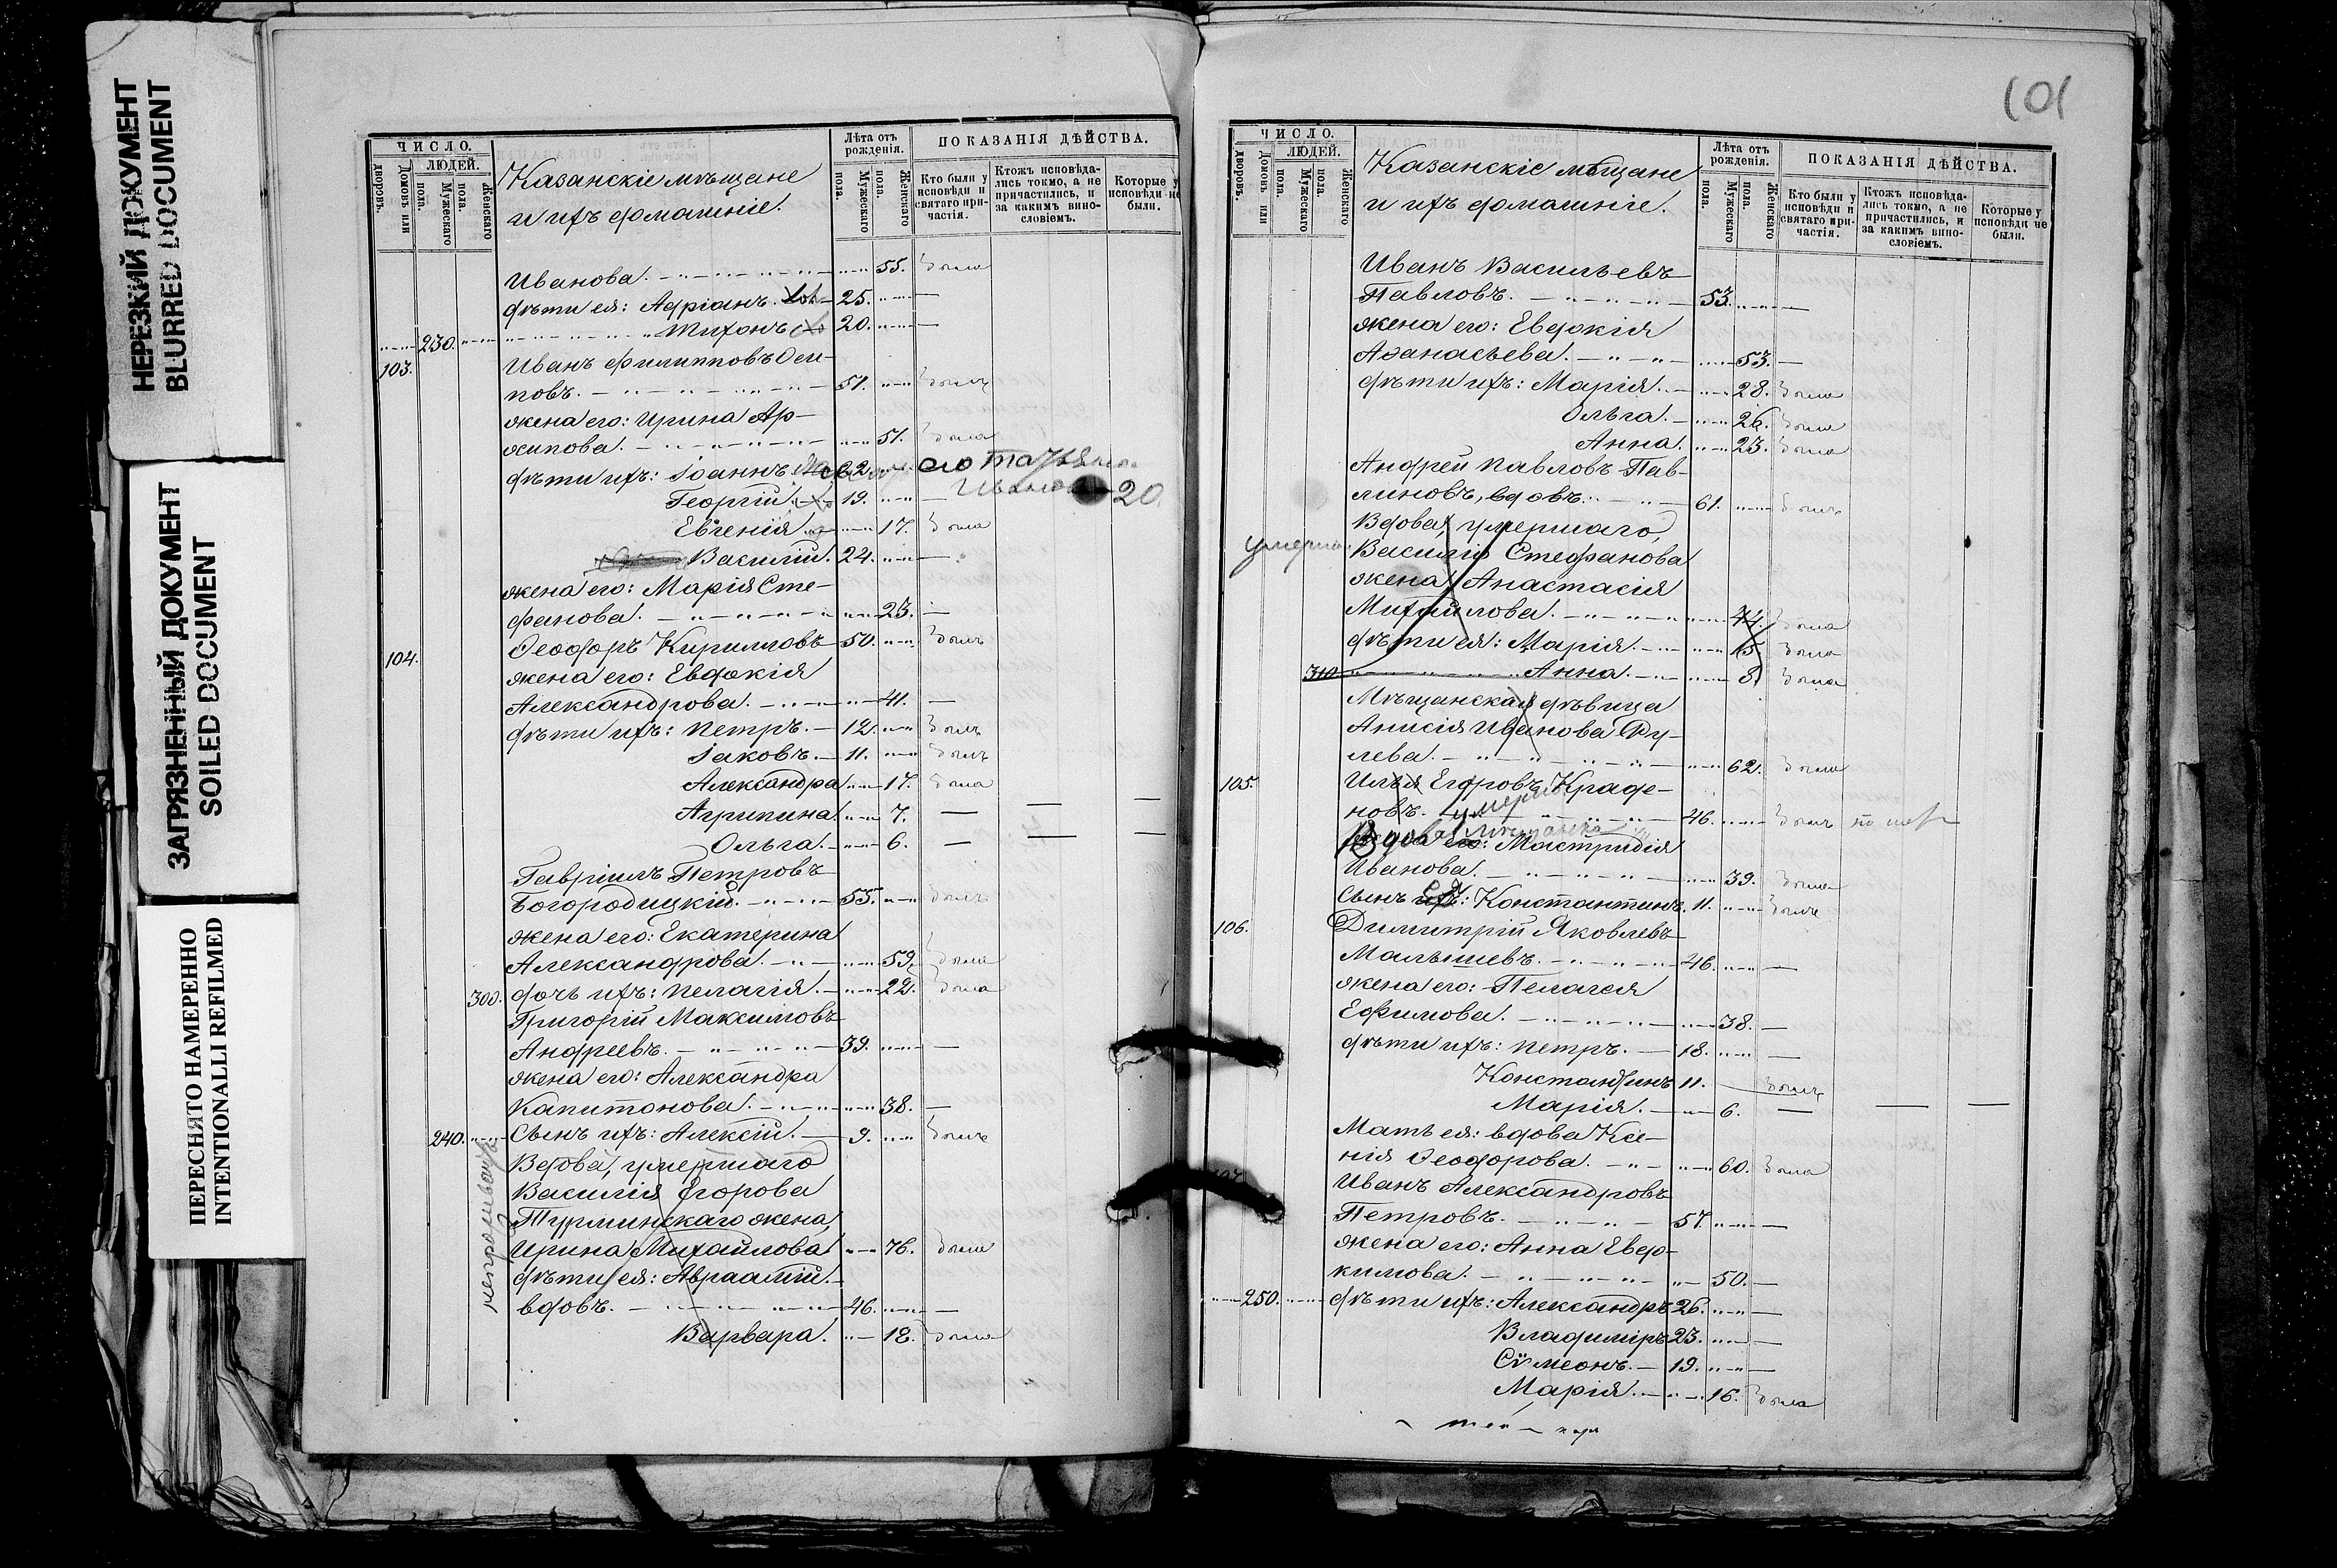 НЕРЕЗКИЙ ДОКУМЕНТ
BLURRED DOCUMENT
ЗАГРЯЗНЕННЫЙ ДОКУМЕНТ
SOILED DOCUMENT
ПЕРЕСНЯТО НАМЕРЕННО
INTENTIONALLI REFILMED
ЧИСЛО.
Домовъ или дворовъ.
ЛЮДЕЙ.
Мужескаго пола.
Женскаго пола.
Казанскіе мѣщане
и ихъ домашніе.
Лѣта отъ рожденія.
Мужескаго пола.
Женскаго пола.
ПОКАЗАНІЯ ДѢЙСТВА.
Кто были у исповѣди и святаго причастія.
Ктожъ исповѣдались токмо, а не причастились, и за какимъ винословіемъ.
Которые у исповѣди не были.
Иванова. 55. была
дѣти ея: Адріанъ. 25. —
230. Тихонъ 20. —
103. Иванъ Филипповъ Оси-
повъ. 51. былъ
жена его: Ирина Ар-
хипова. 51. была
дѣти ихъ: Іоаннъ его
Георгій 19. — 20
Евгенія 17. была
Василій. 24. —
жена его: Марія Сте-
фанова. 23. —
104. Ѳеодоръ Кирилловъ 50. былъ
жена его: Евдокія
Александрова. 41. —
дѣти ихъ: Петръ. 12. былъ
Іаковъ. 11. былъ
Александра 17. была
Агрипина 7. — — —
Ольга. 6. — — —
Гавріилъ Петровъ
Богородицкій. 55. былъ
жена его: Екатерина
Александрова. 59. была
300. дочь ихъ: Пелагія. 22. была
Григорій Максимовъ
Андреевъ. 39. —
жена его: Александра
Капитонова. 38. —
240. Сынъ ихъ: Алексій. 9. былъ
Вдова, умершаго
Василія Егорова
Турминскаго жена,
Ирина Михайлова 76. была
дѣти ея: Авраамій.
вдовъ. 46. —
Варвара. 18. была
101
ЧИСЛО.
Домовъ или дворовъ.
ЛЮДЕЙ.
Мужескаго пола.
Женскаго пола.
Казанскіе мѣщане
и ихъ домашніе.
Лѣта отъ рожденія.
Мужескаго пола.
Женскаго пола.
ПОКАЗАНІЯ ДѢЙСТВА.
Кто были у исповѣди и святаго причастія.
Ктожъ исповѣдались токмо, а не причастились, и за какимъ винословіемъ.
Которые у исповѣди не были.
Иванъ Васильевъ
Павловъ. 53. —
жена его: Евдокія
Аѳанасьева. 53. —
дѣти ихъ: Марія. 28. была
Ольга. 26. была
Анна. 23. была
Андрей Павловъ Пав-
линовъ, вдовъ. 61. былъ
Вдова, умершаго,
Василія Стефанова
жена Анастасія
Михайлова. 44. была
дѣти ея: Марія. 15. была
310 Анна. 8. была
Мѣщанская дѣвица
Анисія Иванова Ру-
лева. 62. была
105. Илья Егоровъ Краде-
новъ. умеръ 46. былъ
Вдова его: Мастридія
Иванова. 39. была
Сынъ ея: Константинъ. 11. былъ
106. Димитрій Яковлевъ
Малышевъ. 46. —
жена его: Пелагея
Ефимова. 38. —
дѣти ихъ: Петръ. 18. —
Константинъ 11. былъ
Марія. 6. — — —
Мать ея: вдова Ксе-
нія Ѳеодорова. 60. была
Иванъ Александровъ
Петровъ. 57. —
жена его: Анна Евдо-
кимова. 50. —
250. дѣти ихъ: Александръ 26. —
Владиміръ 23. —
Сѵмеонъ. 19. —
Марія. 16. была